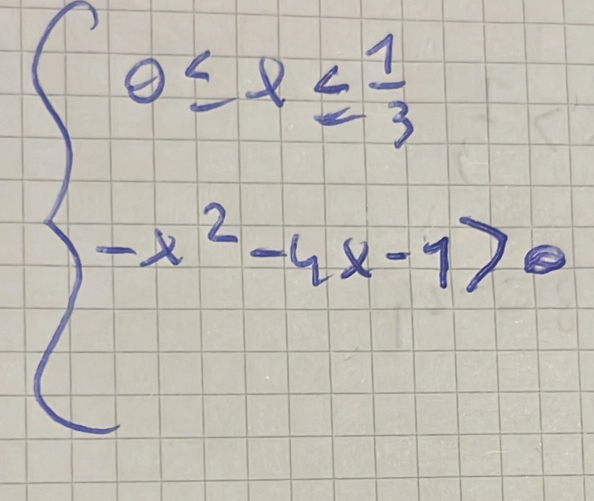 0 ≤ x ≤ 1/3
-x² - 4x - 1 > 0